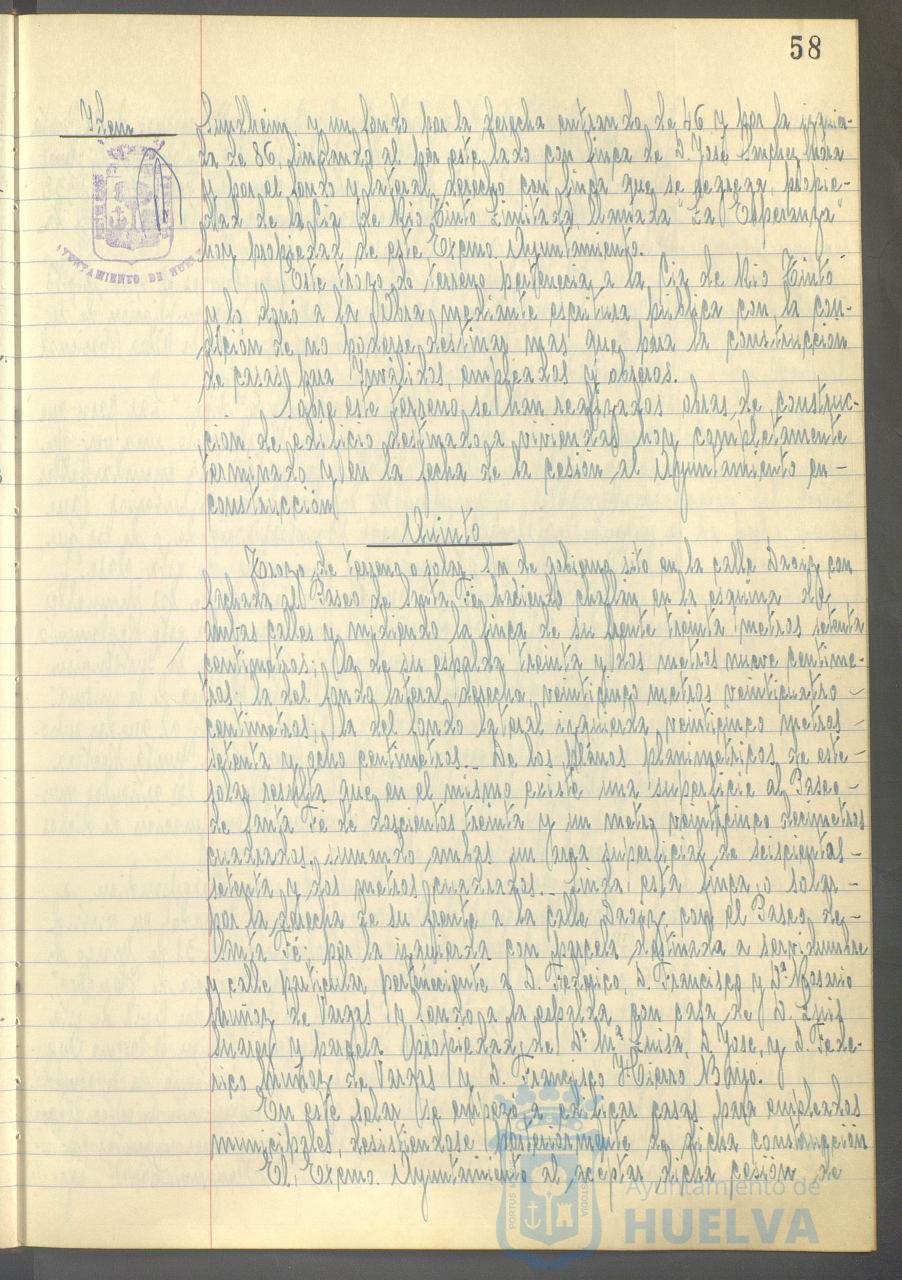 58
Idem
Sundheim, y un fondo por la derecha entrando, de 46 y por la izquier-
da de 86, lindando al por este lado con finca de D. José Sanchez Mora
y por el fondo y lateral derecho con finca que se segrega, propie-
dad de la Cia de Rio Tinto Limitada llamada "La Esperanza"
hoy propiedad de este Excmo. Ayuntamiento.
Este trozo de terreno pertenecia a la Cia de Rio Tinto
y lo donó a la Obra mediante escritura pública con la con-
dición de no poderse destinar más que para la construcción
de casas para Inválidos, empleados y obreros.
Sobre este terreno se han realizados obras de construc-
cion de edificio destinado a viviendas hoy completamente
terminado y en la fecha de la cesión al Ayuntamiento en-
construcción
Quinto
Trozo de terreno o solar s/n de gobierno sito en la calle Daoiz con
fachada al Paseo de Santa Fé haciendo chaflán en la esquina de
ambas calles y midiendo la linea de su frente treinta metros setenta
centimetros; la de su espalda treinta y dos metros nueve centime-
tros: la del fondo lateral derecha, veinticinco metros veinticuatro-
centimetros; la del fondo lateral izquierda veinticinco metros-
setenta y ocho centimetros.. De los planos planimetricos de este-
solar resulta que en el mismo existe una superficie al Paseo-
de Santa Fé de doscientos treinta y un metro veinticinco decimetros
cuadrados, sumando ambas un area superficial de seiscientos-
setenta y dos metros cuadrados.- Linda esta finca o solar-
por la derecha de su frente a la calle Daoiz con el Paseo de-
Santa Fé; por la izquierda con parcela destinada a servidumbre
y calle particular perteneciente a D. Federico, D. Francisco y Dª Rosario
Muñoz de Vargas y fondo a la espalda con casa de D. Luis
y parcela propiedad de Dª Mª Luisa, D. Jose, y D. Fede-
rico Muñoz de Vargas y D. Francisco Hierro Bayo.
En este solar se empezo a edificar casas para empleados
municipales, desistiendose posteriormente de dicha construcción
El Excmo. Ayuntamiento al aceptar dicha cesión de
AYUNTAMIENTO DE HUELVA
Ayuntamiento de
HUELVA